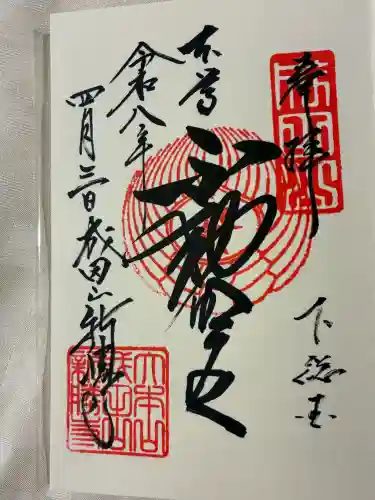 奉拝
下総国
本尊
不動明王
令和八年
四月三日
成田山新勝寺
大本山
成田山
新勝寺